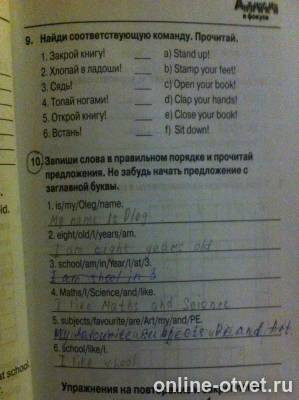 в фокусе
9. Найди соответствующую команду. Прочитай.
1. Закрой книгу! a) Stand up!
2. Хлопай в ладоши! b) Stamp your feet!
3. Сядь! c) Open your book!
4. Топай ногами! d) Clap your hands!
5. Открой книгу! e) Close your book!
6. Встань! f) Sit down!
10. Запиши слова в правильном порядке и прочитай
предложения. Не забудь начать предложение с
заглавной буквы.
1. is/my/Oleg/name.
My name is Oleg
2. eight/old/I/years/am.
I am eight years old
3. school/am/in/Year/I/at/3.
I am in 3
4. Maths/I/Science/and/like.
I like Maths and Science
5. subjects/favourite/are/Art/my/and/PE.
My favourite are PE and Art.
6. school/like/I.
I like
Упражнения на
id.
at school.
online-otvet.ru